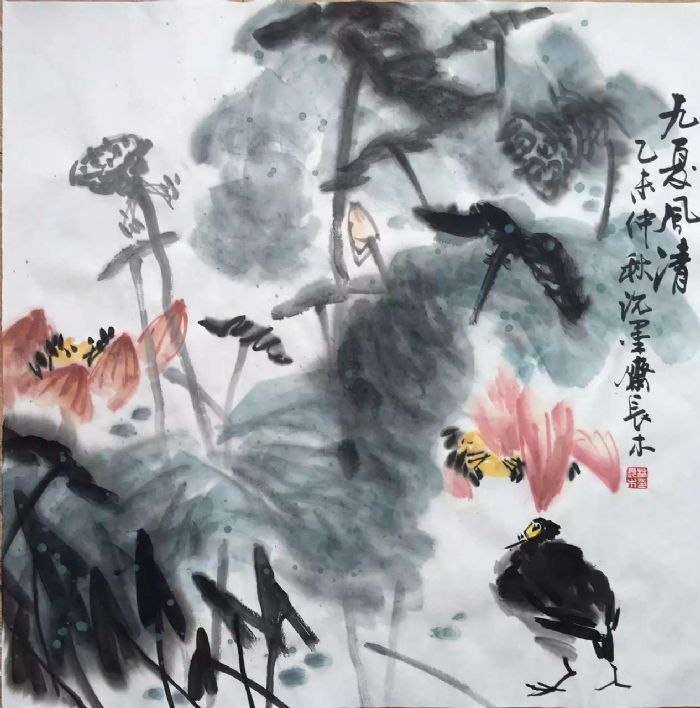 九夏风清
乙未仲秋沉墨斋長木